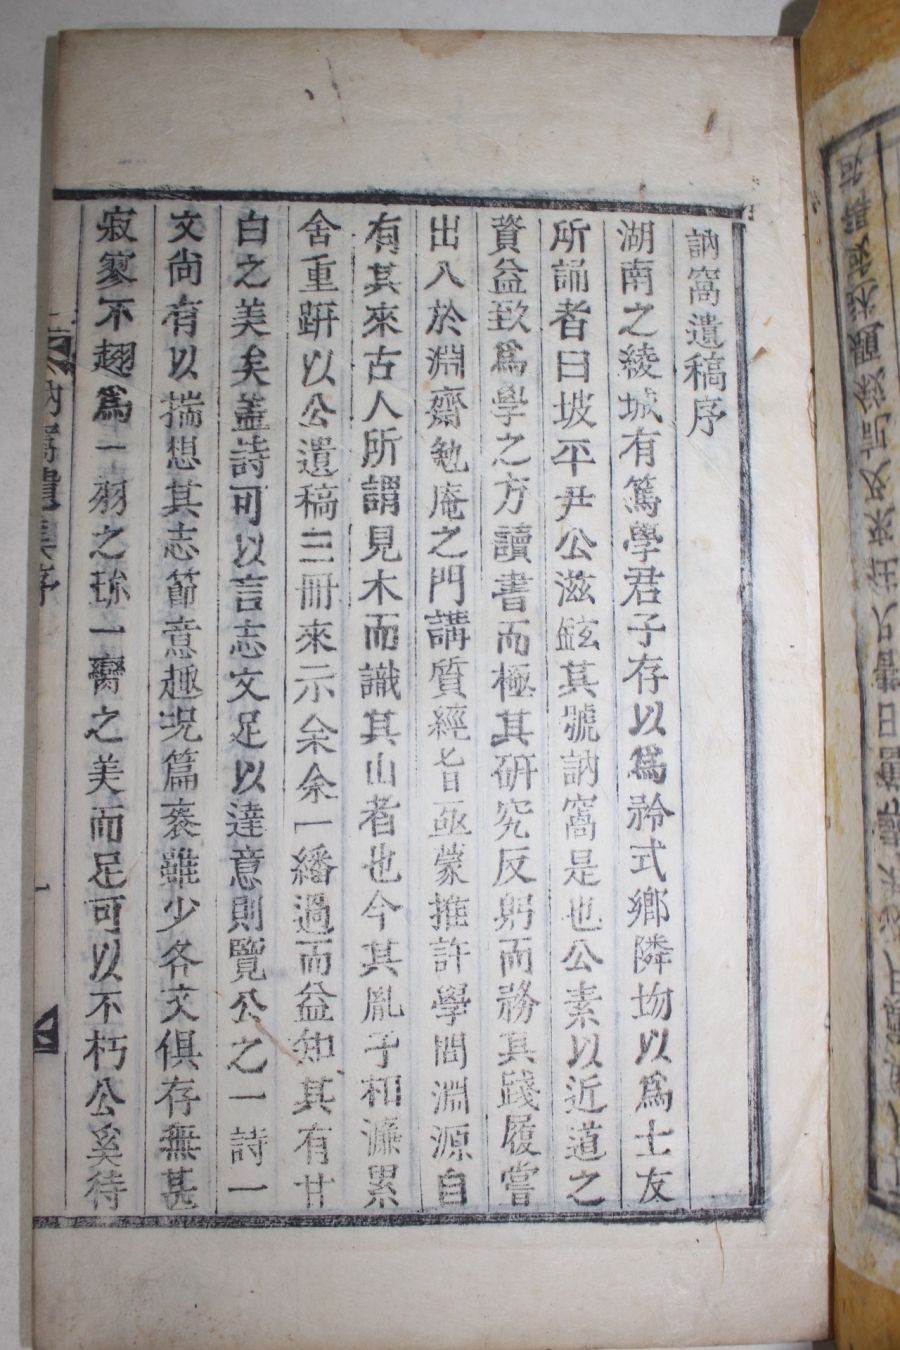 訥窩遺稿序
湖南之綾城有篤學君子存以爲衿式鄕隣歾以爲士友
所誦者曰坡平尹公滋鉉其號訥窩是也公素以近道之
資益致爲學之方讀書而極其硏究反躬而務其踐履嘗
出入於淵齋勉庵之門講質經旨亟蒙推許學問淵源自
有其來古人所謂見木而識其山者也今其胤子相濂累
舍重趼以公遺稿三冊來示余余一繙過而益知其有甘
白之美矣盖詩可以言志文足以達意則覽公之一詩一
文尙有以揣想其志節意趣况篇袠雖少各文俱存無甚
寂寥不翅爲一羽之珍一臠之美而足可以不朽公奚待
訥窩遺集序
一